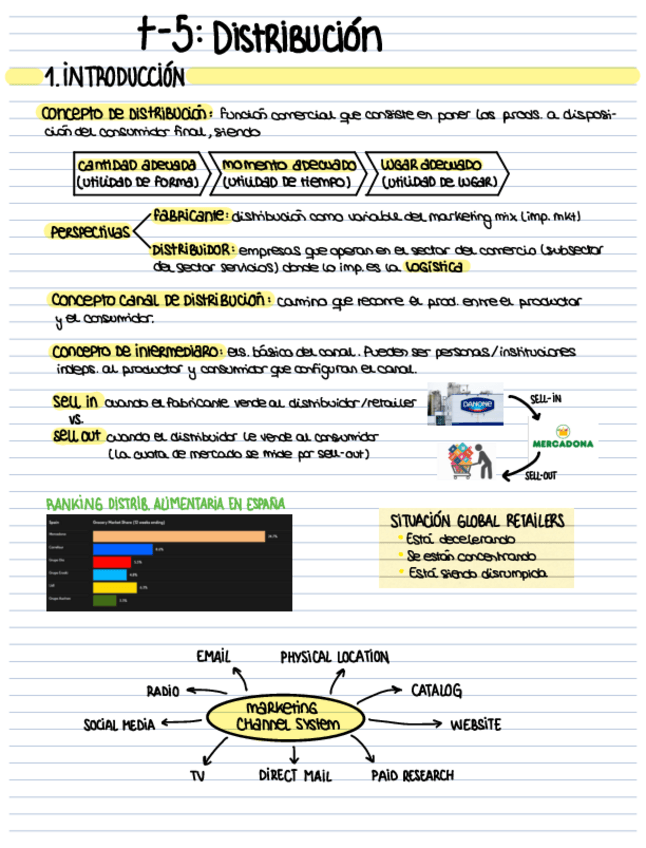 t-5: Distribución
1. INTRODUCCIÓN
Concepto de Distribución: función comercial que consiste en poner los prods. a disposi-
ción del consumidor final, siendo
cantidad adecuada
(utilidad de forma)
momento adecuado
(utilidad de tiempo)
lugar adecuado
(utilidad de lugar)
Perspectivas
Fabricante: distribución como variable del marketing mix (imp. mkt)
Distribuidor: empresas que operan en el sector del comercio (subsector
del sector servicios) donde lo imp. es la logística
Concepto canal de distribución: camino que recorre el prod. entre el productor
y el consumidor.
Concepto de intermediaro: els. básico del canal. Pueden ser personas/instituciones
indeps. al productor y consumidor que configuran el canal.
Sell in cuando el fabricante vende al distribuidor/retailer
vs.
Sell out cuando el distribuidor le vende al consumidor
(La cuota de mercado se mide por sell-out)
DANONE
SELL-IN
MERCADONA
SELL-OUT
RANKING DISTRIB. ALIMENTARIA EN ESPAÑA
Spain Grocery Market Share (12 weeks ending)
Mercadona
Carrefour
Lidl
SITUACIÓN GLOBAL RETAILERS
Está decelerando
Se están concentrando
Está siendo disrumpida
EMAIL
PHYSICAL LOCATION
RADIO
CATALOG
marketing
channel system
SOCIAL MEDIA
WEBSITE
TV
DIRECT MAIL
PAID RESEARCH